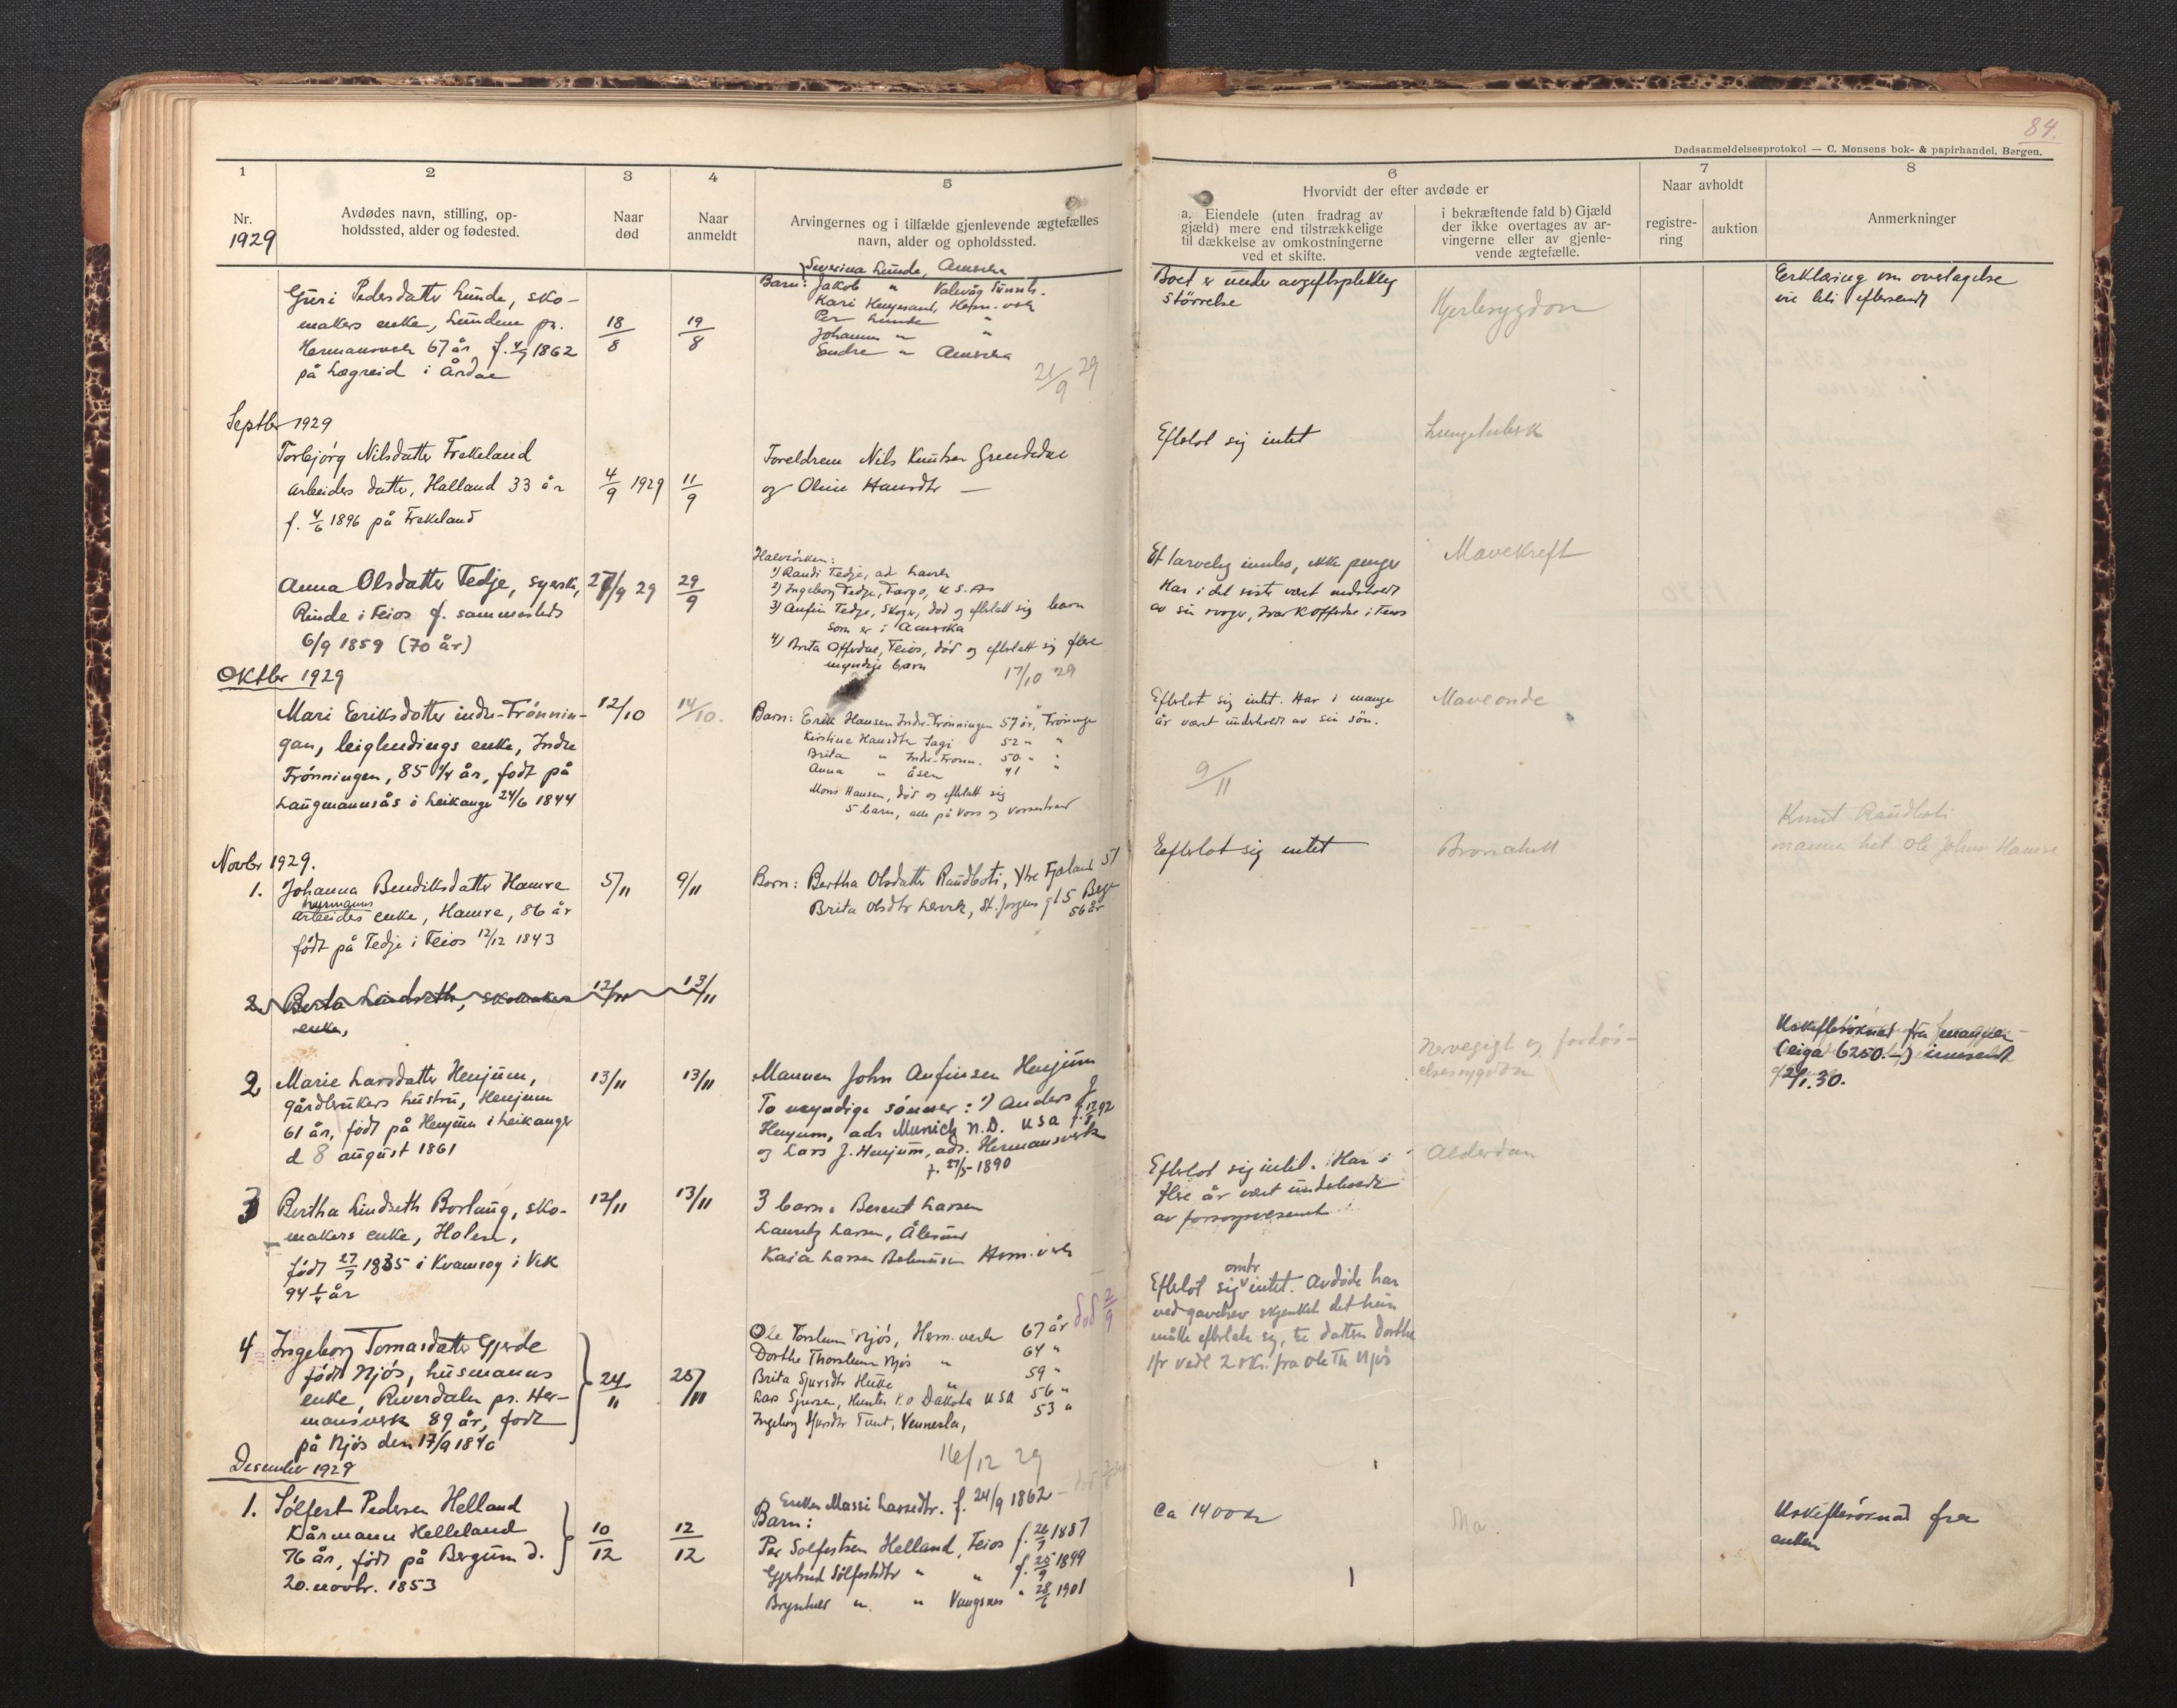 84.
Dødsanmeldelsesprotokol — C. Monsens bok- & papirhandel, Bergen.
1
2
3
4
5
6
7
8
Nr.
1929
Avdødes navn, stilling, op-
holdssted, alder og fødested.
Naar
død
Naar
anmeldt
Arvingernes og i tilfælde gjenlevende ægtefælles
navn, alder og opholdssted.
Hvorvidt der efter avdøde er
a. Eiendele (uten fradrag av
gjæld) mere end tilstrækkelige
til dækkelse av omkostningerne
ved et skifte.
i bekræftende fald b) Gjæld
der ikke overtages av ar-
vingerne eller av gjenle-
vende ægtefælle.
Naar avholdt
registre-
ring
auktion
Anmerkninger
Guri Pedersdatter Lunde, sko-
makers enke, Lunden pr.
Hermansverk 67 år f. 4/9 1862
på Lægreid i Årdal
18/8
19/8
Severina Lunde, Amerika
Barn: Jakob " Valevåg Sunnh.
Kari Henjesand, Herm.verk
Per Lunde "
Johannes " "
Sendre " Amerika
21/9 29
Boet er under avgiftspliktig
størrelse
Hjertesygdom
Erklæring om overtagelse
vil bli eftersendt
Septbr 1929
Torbjörg Nilsdatter Frekeland
arbeiders datter, Halland 33 år
f. 4/6 1896 på Frekeland
4/9 1929
11/9
Foreldrene Nils Knutsen Grindedal
og Oline Hansdtr —
Efterlot sig intet
Lungetuberk
Anna Olsdatter Tedje, syerske,
Rinde i Feios f. sammesteds
6/9 1859 (70 år)
27/9 29
29/9
Halvsösken:
1) Randi Tedje, ad Lavik
2) Ingeborg Tedje, Fargo, U.S.A.
3) Anfin Tedje, død og efterlatt sig barn
som er i Amerika
4) Brita Offerdal, Feios, död og efterlatt sig flere
myndige barn
17/10 29
Et tarvelig innbo, ikke penger
Har i det siste vært underholdt
av sin svoger, Ivar K Offerdal i Feios
Mavekreft
Oktbr 1929
Mari Eriksdotter indre-Trönnin-
gan, leiglendings enke, Indre
Trönningen, 85 1/4 år, født på
Laugmannsås i Leikanger 24/6 1844
12/10
14/10.
Barn: Erik Hansen Indre-Trönningen 57 år,
Kirstine Hansdtr Sagi 52 " "
Brita " Indre-Tronn. 50 " "
Anna " åsen 41 "
Mons Hansen, död og efterlatt sig
5 barn, alle på Voss og Vossestrand
9/11
Efterlot sig intet. Har i mange
år vært underholdt av sin sön.
Maveonde
Novbr 1929.
1. Johanna Bendiksdatter Hamre
husmanns
arbeiders enke, Hamre, 86 år
født på Tedje i Feios 12/12 1843
5/11
9/11
Barn: Bertha Olsdatter Raudboti, Ytre Fjæland 51
Brita Olsdtr Lervik, St. Jørgens gt 5 Berge
56 år
Eefterlot sig intet
Knut Raudboti
mannen het Ole Johns Hamre
2. Berta Lindseth, skomakers
enke,
12/11
13/11
2 Marie Larsdatter Henjum,
gårdbrukers hustru, Henjum
61 år, født på Henjum i Leikanger
d 8 august 1861
13/11
13/11
Mannen John Anfinsen Henjum
To myndige sönner: 1) Anders J
Henjum, adr Munich N.D. USA
og Lars J. Henjum, adr. Hermansverk
f. 27/5-1890
Nervegigt og fordøi-
elsessygdom
Uskifteсöknad fra mannen
(eiga 6250.-) innsendt
2/1.30.
3 Bertha Lindseth Borlaug, sko-
makers enke, Holen,
født 27/7 1835 i Kvamsøy i Vik
94 1/4 år
12/11
13/11
3 barn: Berent Larsen
Lauritz Larsen, Ålesund
Kaia Larsen Herm.verk
Efterlot sig intet. Har i
flere år vært underholdt
av forsorgsvesenet
Alderdom
4 Ingeborg Tomasdatter Gjerde
født Njös, husmanns
enke, Röverdalen pr. Her-
mansverk 89 år, født
på Njös den 17/9 1840
24/11
25/11
Ole Torsteinsen Njös, Herm.verk 67 år
död 2/9
Dorthe Thorsteinsen Njös " 64 "
Brita Sjursdtr Hukke " 59 "
Lars Sjursen, Hunter P.O Dakota USA 56 "
Ingeborg Sjursdtr Tunt, Vennesla, 53 "
16/12 29
omtr
Efterlot sig intet. Avdøde har
ved gavebrev skjenket det hun
måtte efterlate sig, til datteren Dorthe
ifr vedl 2 skr. fra Ole Th Njös
Desember 1929
1. Sölfest Pedersen Helland
Kårmann Helleland
76 år, født på Bergum d.
20. novbr. 1853
10/12
12/12
Enken Massi Lassedtr. f. 24/9 1862
Barn:
Per Solfestsen Helland, Feios f. 26/7 1887
Gjertrud Sölfestsdtr " " f. 25/9 1899
" " Vangsnes " 28/6 1901
Ca 1400 kr
Ma.
Uskifteсöknad fra
enken